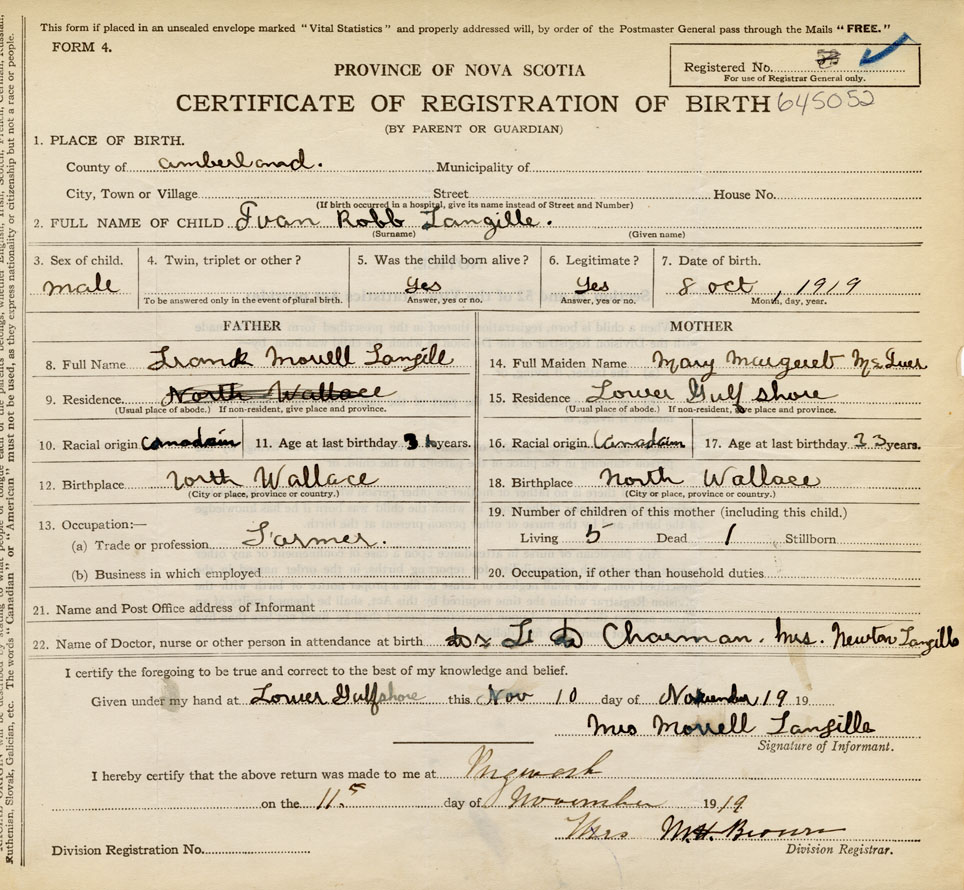 This form if placed in an unsealed envelope marked "Vital Statistics" and properly addressed will, by order of the Postmaster General pass through the Mails "FREE."
FORM 4.
Registered No.
For use of Registrar General only.
PROVINCE OF NOVA SCOTIA
CERTIFICATE OF REGISTRATION OF BIRTH 645052
(BY PARENT OR GUARDIAN)
1. PLACE OF BIRTH.
County of amberland. Municipality of
City, Town or Village Street House No.
(If birth occurred in a hospital, give its name instead of Street and Number)
2. FULL NAME OF CHILD Ivan Robb Langille.
(Surname) (Given name)
3. Sex of child. 4. Twin, triplet or other? 5. Was the child born alive? 6. Legitimate? 7. Date of birth.
male Yes Yes 8 oct, 1919
To be answered only in the event of plural birth. Answer, yes or no. Answer, yes or no. Month, day, year.
FATHER MOTHER
8. Full Name Frank Morell Langill 14. Full Maiden Name Mary Margaret
9. Residence North Wallace 15. Residence Lower Gulf shore
(Usual place of abode.) If non-resident, give place and province. (Usual place of abode.) If non-resident, give place and province.
10. Racial origin Canadain 11. Age at last birthday years. 16. Racial origin Canadain 17. Age at last birthday 33 years.
12. Birthplace North Wallace 18. Birthplace North Wallace
(City or place, province or country.) (City or place, province or country.)
13. Occupation:— 19. Number of children of this mother (including this child.)
(a) Trade or profession Farmer. Living 5 Dead 1 Stillborn
(b) Business in which employed 20. Occupation, if other than household duties
21. Name and Post Office address of Informant
22. Name of Doctor, nurse or other person in attendance at birth Dr Chaman. Mrs. Newton Langille
I certify the foregoing to be true and correct to the best of my knowledge and belief.
Given under my hand at Lower Gulfshore this Nov 10 day of November 19 19
Mrs Morell Langille
Signature of Informant.
I hereby certify that the above return was made to me at Pugwash
on the 11th day of November 1919
Mrs M.H. Brown
Division Registration No. Division Registrar.